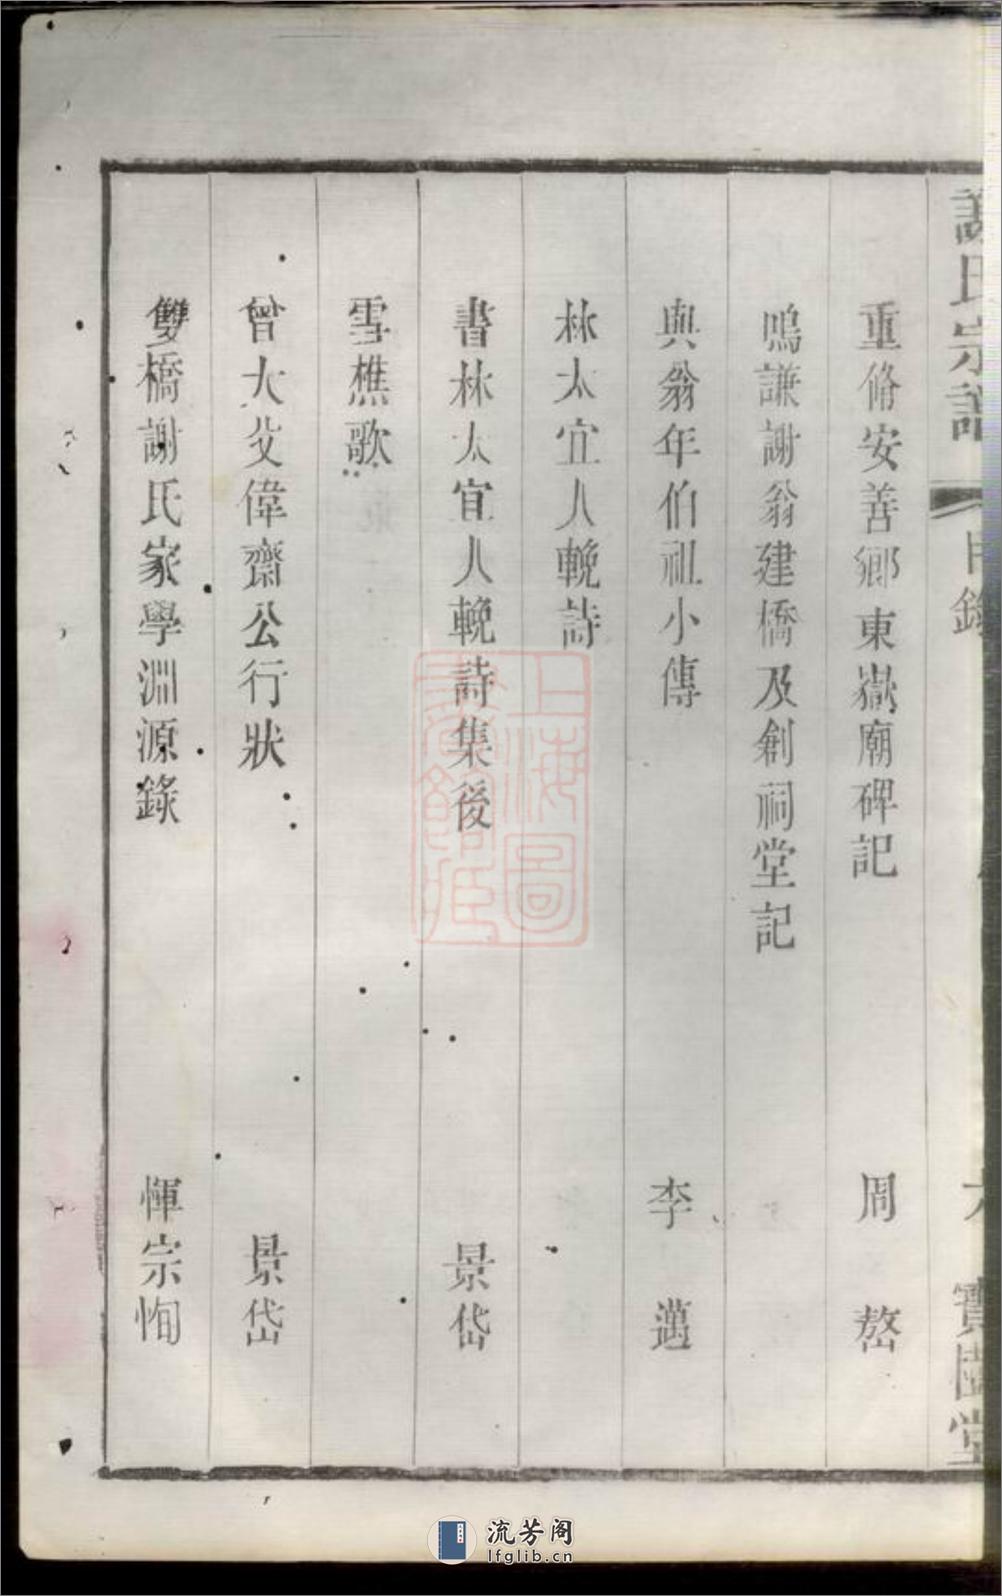 謝氏宗譜 目錄 寶樹堂
重脩安善鄉東嶽廟碑記 周嶅
鳴謙謝翁建橋及創祠堂記
與翁年伯祖小傳 李邁
林太宜人輓詩
書林太宜人輓詩集後 景岱
雪樵歌
曾大父偉齋公行狀 景岱
雙橋謝氏家學淵源錄 惲宗恂
上海圖
書館藏
流芳阁
lfglib.cn